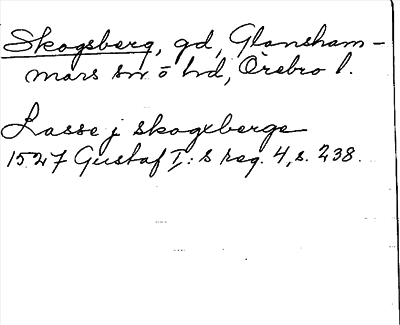 Skogsberg, gd, Glansham-
mars sn o hd, Örebro l.
Lasse j skogxberge
1527 Gustaf I:s reg. 4, s. 238.